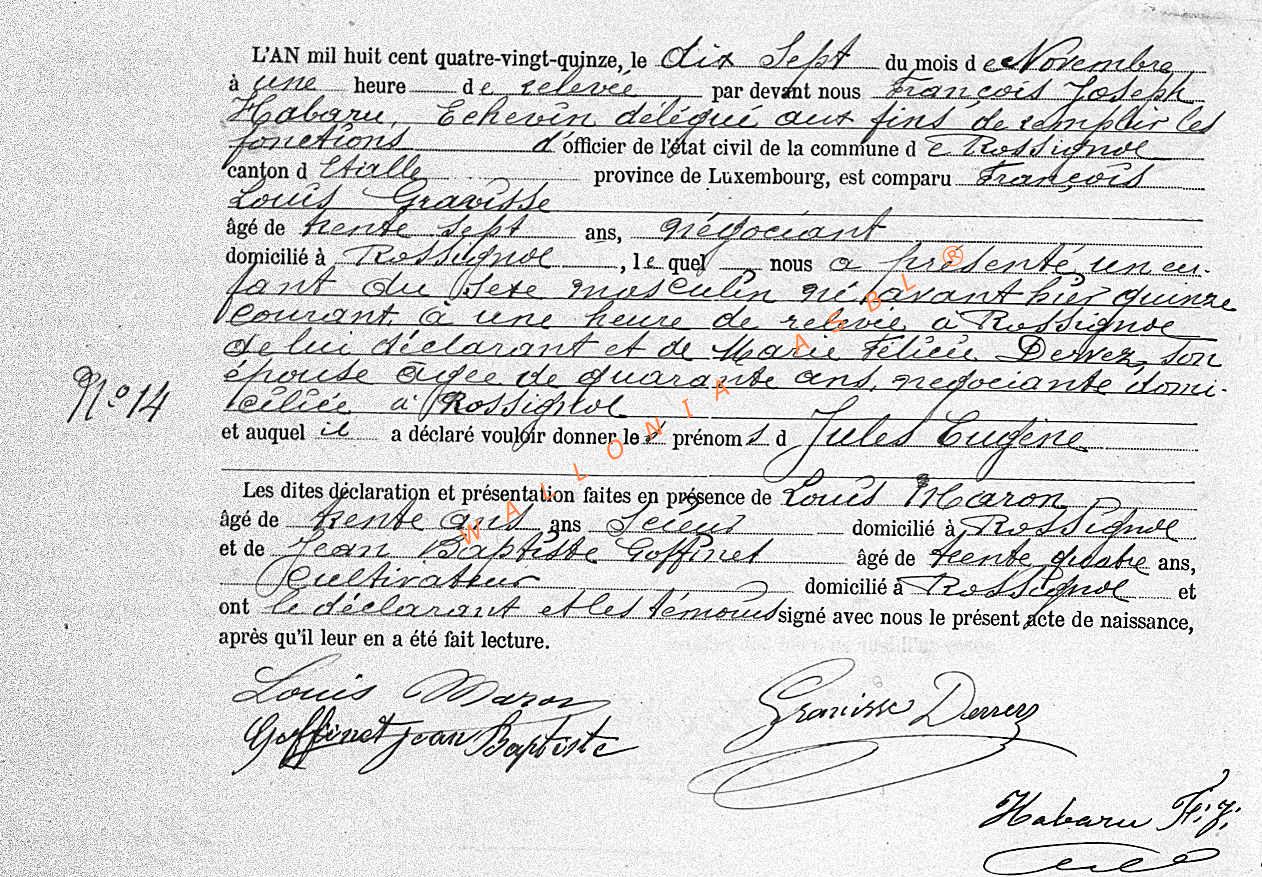 L'AN mil huit cent quatre-vingt-quinze, le dix Sept du mois de Novembre
à une heure de relevée par devant nous François Joseph
Habaru, Echevin délégué aux fins de remplir les
fonctions d'officier de l'état civil de la commune de Rossignol
canton d Etalle province de Luxembourg, est comparu François
Louis Gravisse
âgé de trente sept ans, négociant
domicilié à Rossignol, le quel nous a présenté un en-
fant du sexe masculin né avant hier quinze
courant, à une heure de relevée, à Rossignol
de lui déclarant et de Marie Félicie Derrez, son
épouse agée de quarante ans, negociante domi-
ciliée à Rossignol
Nº 14
et auquel il a déclaré vouloir donner les prénoms d Jules Eugène
Les dites déclaration et présentation faites en présence de Louis Maron
âgé de trente ans ans Scieur domicilié à Rossignol
et de Jean Baptiste Goffinet âgé de trente quatre ans,
Cultivateur domicilié à Rossignol et
ont le déclarant et les témoins signé avec nous le présent acte de naissance,
après qu'il leur en a été fait lecture.
Louis Maron
Gravisse Derrez
Goffinet jean Baptiste
Habaru F. J.
WALLONIA ASBL ®